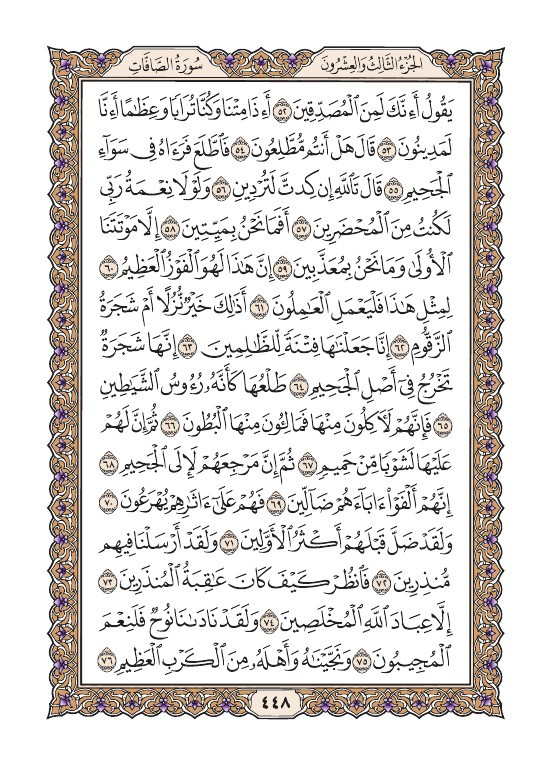 الجُزْءُ الثَّالِثُ وَالعِشْرُونَ
سُورَةُ الصَّافَّاتِ
يَقُولُ أَءِنَّكَ لَمِنَ ٱلۡمُصَدِّقِينَ ٥٢ أَءِذَا مِتۡنَا وَكُنَّا تُرَابٗا وَعِظَٰمًا أَءِنَّا
لَمَدِينُونَ ٥٣ قَالَ هَلۡ أَنتُم مُّطَّلِعُونَ ٥٤ فَٱطَّلَعَ فَرَءَاهُ فِي سَوَآءِ
ٱلۡجَحِيمِ ٥٥ قَالَ تَٱللَّهِ إِن كِدتَّ لَتُرۡدِينِ ٥٦ وَلَوۡلَا نِعۡمَةُ رَبِّي
لَكُنتُ مِنَ ٱلۡمُحۡضَرِينَ ٥٧ أَفَمَا نَحۡنُ بِمَيِّتِينَ ٥٨ إِلَّا مَوۡتَتَنَا
ٱلۡأُولَىٰ وَمَا نَحۡنُ بِمُعَذَّبِينَ ٥٩ إِنَّ هَٰذَا لَهُوَ ٱلۡفَوۡزُ ٱلۡعَظِيمُ ٦٠
لِمِثۡلِ هَٰذَا فَلۡيَعۡمَلِ ٱلۡعَٰمِلُونَ ٦١ أَذَٰلِكَ خَيۡرٞ نُّزُلًا أَمۡ شَجَرَةُ
ٱلزَّقُّومِ ٦٢ إِنَّا جَعَلۡنَٰهَا فِتۡنَةٗ لِّلظَّٰلِمِينَ ٦٣ إِنَّهَا شَجَرَةٞ
تَخۡرُجُ فِيٓ أَصۡلِ ٱلۡجَحِيمِ ٦٤ طَلۡعُهَا كَأَنَّهُۥ رُءُوسُ ٱلشَّيَٰطِينِ
٦٥ فَإِنَّهُمۡ لَأٓكِلُونَ مِنۡهَا فَمَالِـُٔونَ مِنۡهَا ٱلۡبُطُونَ ٦٦ ثُمَّ إِنَّ لَهُمۡ
عَلَيۡهَا لَشَوۡبٗا مِّنۡ حَمِيمٖ ٦٧ ثُمَّ إِنَّ مَرۡجِعَهُمۡ لَإِلَى ٱلۡجَحِيمِ ٦٨
إِنَّهُمۡ أَلۡفَوۡاْ ءَابَآءَهُمۡ ضَآلِّينَ ٦٩ فَهُمۡ عَلَىٰٓ ءَاثَٰرِهِمۡ يُهۡرَعُونَ ٧٠
وَلَقَدۡ ضَلَّ قَبۡلَهُمۡ أَكۡثَرُ ٱلۡأَوَّلِينَ ٧١ وَلَقَدۡ أَرۡسَلۡنَا فِيهِم
مُّنذِرِينَ ٧٢ فَٱنظُرۡ كَيۡفَ كَانَ عَٰقِبَةُ ٱلۡمُنذَرِينَ ٧٣
إِلَّا عِبَادَ ٱللَّهِ ٱلۡمُخۡلَصِينَ ٧٤ وَلَقَدۡ نَادَىٰنَا نُوحٞ فَلَنِعۡمَ
ٱلۡمُجِيبُونَ ٧٥ وَنَجَّيۡنَٰهُ وَأَهۡلَهُۥ مِنَ ٱلۡكَرۡبِ ٱلۡعَظِيمِ ٧٦
٤٤٨